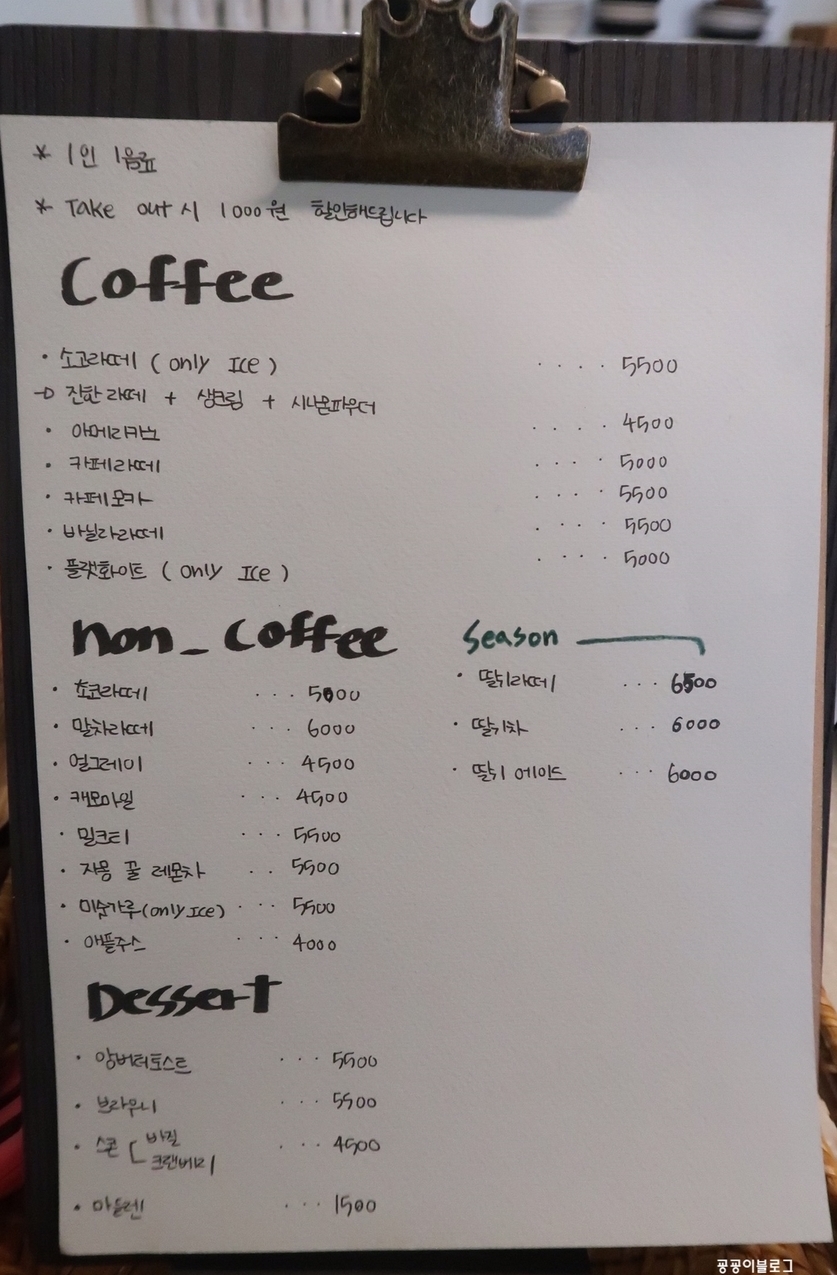 * 1인 1음료
* Take out 시 1000원 할인해드립니다
Coffee
· 소고라떼 (only Ice) · · · · 5500
→ 진한라떼 + 생크림 + 시나몬파우더
· 아메리카노 · · · · 4500
· 카페라떼 · · · · 5000
· 카페모카 · · · · 5500
· 바닐라라떼 · · · · 5500
· 플랫화이트 (only Ice) · · · · 5000
non_coffee
· 쵸코라떼 · · · 5000
· 말차라떼 · · · 6000
· 얼그레이 · · · 4500
· 캐모마일 · · · 4500
· 밀크티 · · · 5500
· 자몽 꿀 레몬차 · · 5500
· 미숫가루(only Ice) · · · 5500
· 애플주스 · · · 4000
Season
· 딸기라떼 · · · 6500
· 딸기차 · · · 6000
· 딸기 에이드 · · · 6000
Dessert
· 앙버터토스트 · · · 5500
· 브라우니 · · · 5500
· 스콘 [ 바질 · · · 4500
크랜베리
· 마들렌 · · · 1500
공공이블로그